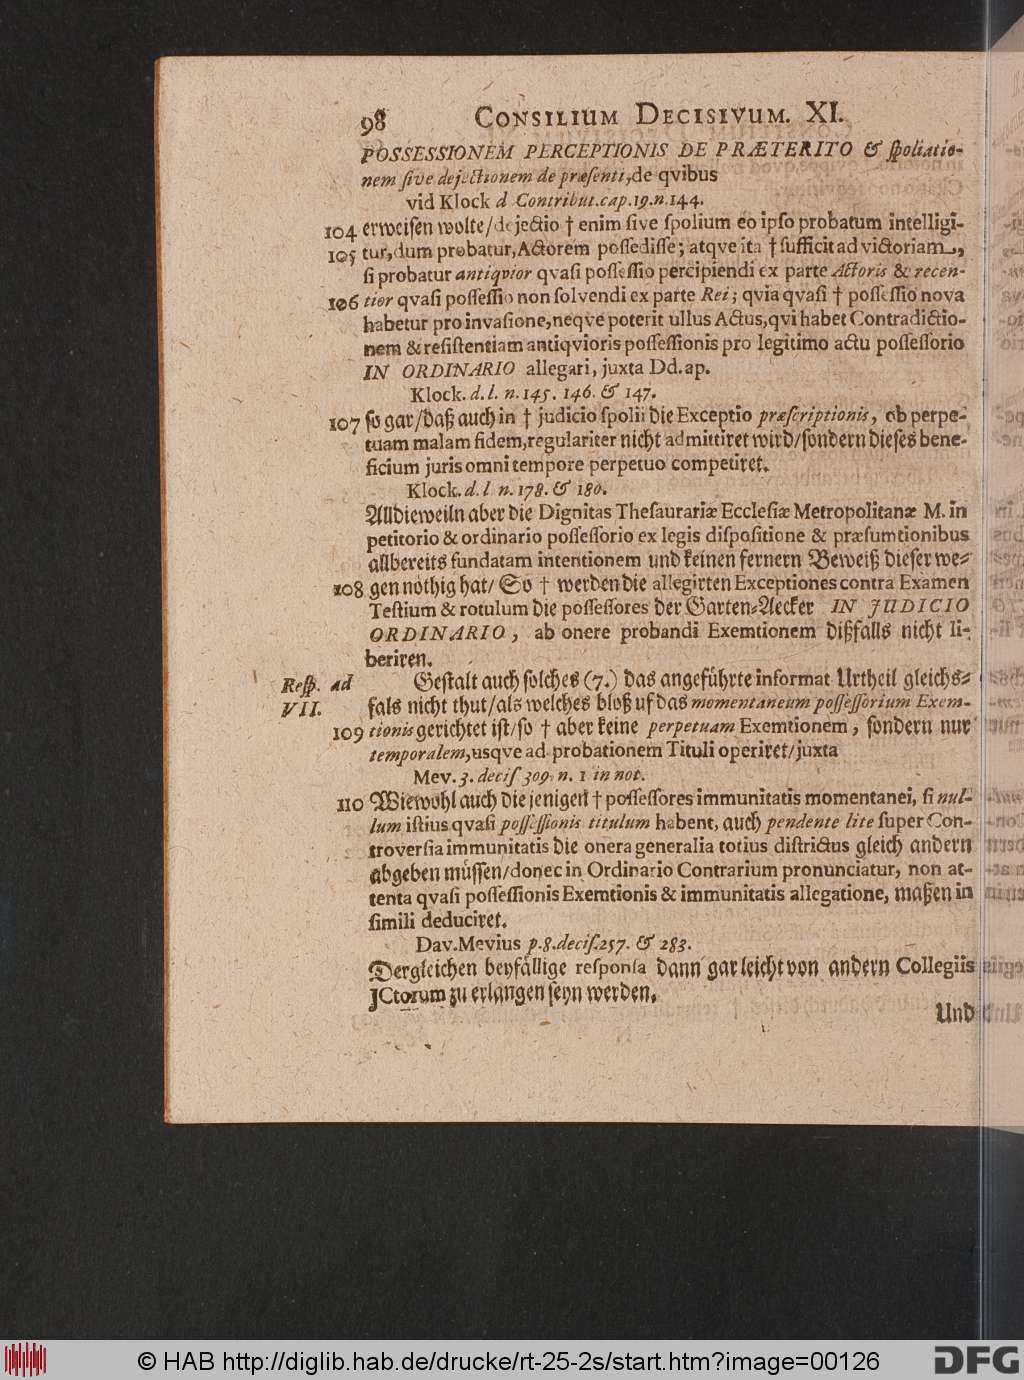 98 CONSILIUM DECISIVUM. XI.
POSSESSIONEM PERCEPTIONIS DE PRÆTERITO & ſpoliatio-
nem ſive dejectionem de præſenti, de qvibus
vid Klock d Contribut. cap. 19. n. 144.
104 erweiſen wolte/ dejectio † enim ſive ſpolium eo ipſo probatum intelligi-
105 tur, dum probatur, Actorem poſſediſſe; atqve ita † ſufficit ad victoriam,
ſi probatur antiqvior qvaſi poſſeſſio percipiendi ex parte Actoris & recen-
106 tior qvaſi poſſeſſio non ſolvendi ex parte Rei; qvia qvaſi † poſſeſſio nova
habetur pro invaſione, neqve poterit ullus Actus, qvi habet Contradictio-
nem & reſiſtentiam antiqvioris poſſeſſionis pro legitimo actu poſſeſſorio
IN ORDINARIO allegari, juxta Dd. ap.
Klock. d. l. n. 145. 146. & 147.
107 ſo gar/ daß auch in † judicio ſpolii die Exceptio præſcriptionis, ob perpe-
tuam malam fidem, regulariter nicht admittiret wird/ ſondern dieſes bene-
ficium juris omni tempore perpetuo competiret.
Klock. d. l n. 178. & 180.
Alldieweiln aber die Dignitas Theſaurariæ Eccleſiæ Metropolitanæ M. in
petitorio & ordinario poſſeſſorio ex legis diſpoſitione & præſumtionibus
allbereits fundatam intentionem und keinen fernern Beweiß dieſer we-
108 gen nöthig hat/ So † werden die allegirten Exceptiones contra Examen
Teſtium & rotulum die poſſeſſores der Garten-Aecker IN JUDICIO
ORDINARIO, ab onere probandi Exemtionem dißfalls nicht li-
beriren.
Reſp. ad Geſtalt auch ſolches (7.) das angeführte informat Urtheil gleichs-
VII. fals nicht thut/ als welches bloß uf das momentaneum poſſeſſorium Exem-
109 tionis gerichtet iſt/ ſo † aber keine perpetuam Exemtionem, ſondern nur
temporalem, usqve ad probationem Tituli operiret/ juxta
Mev. 3. deciſ 309. n. 1 in not.
110 Wiewohl auch die jenigen † poſſeſſores immunitatis momentanei, ſi nul-
lum iſtius qvaſi poſſeſſionis titulum habent, auch pendente lite ſuper Con-
troverſia immunitatis die onera generalia totius diſtrictus gleich andern
abgeben müſſen/ donec in Ordinario Contrarium pronunciatur, non at-
tenta qvaſi poſſeſſionis Exemtionis & immunitatis allegatione, maßen in
ſimili deduciret.
Dav. Mevius p. 8. deciſ. 257. & 283.
Dergleichen beyfällige reſponſa dann gar leicht von andern Collegiis
JCtorum zu erlangen ſeyn werden.
Und
© HAB http://diglib.hab.de/drucke/rt-25-2s/start.htm?image=00126
DFG